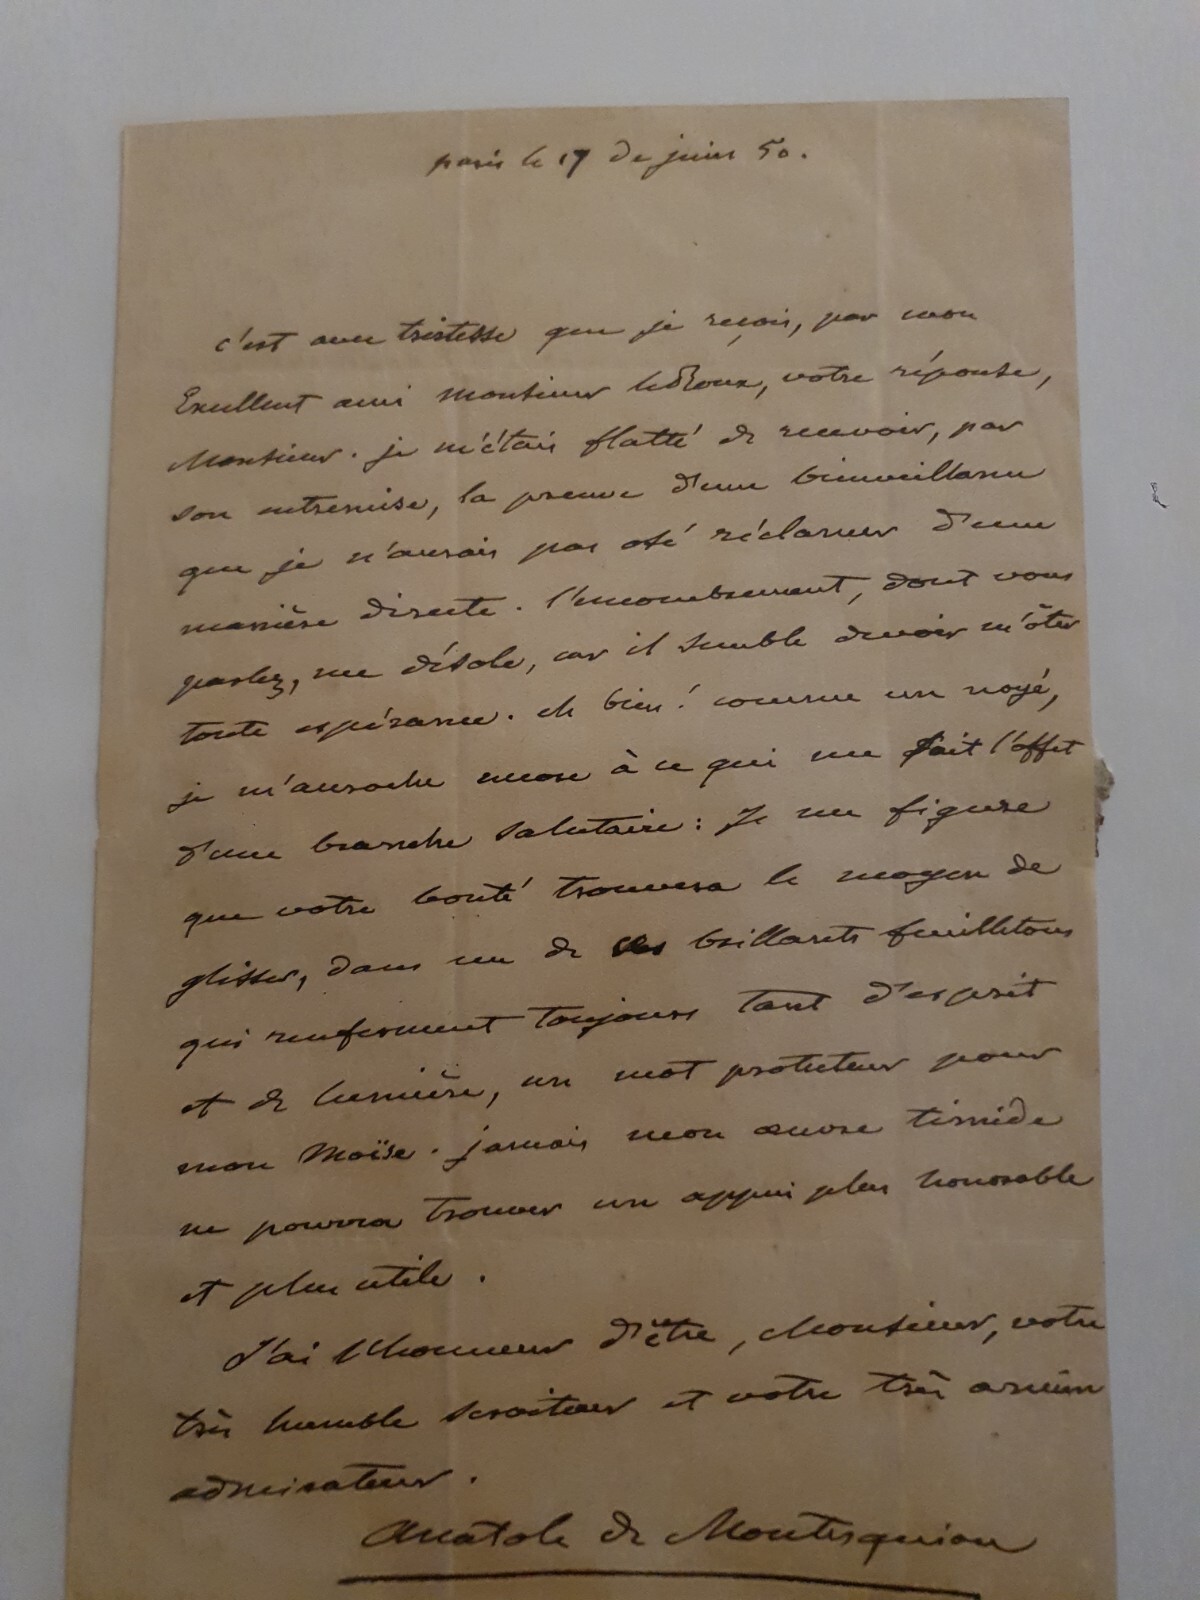 paris le 17 de juin 50.
c'est avec tristesse que je reçois, par mon
Excellent ami monsieur leroux, votre réponse,
Monsieur. je m'étais flatté de recevoir, par
son entremise, la preuve d'une bienveillance
que je n'aurais pas osé réclamer d'une
manière directe. l'encombrement, dont vous
parlez, me désole, car il semble devoir m'ôter
toute espérance. eh bien! comme un noyé,
je m'accroche encore à ce qui me fait l'effet
d'une branche salutaire: Je me figure
que votre bonté trouvera le moyen de
glisser, dans un de ces brillants feuilletons
qui renferment toujours tant d'esprit
et de lumière, un mot protecteur pour
mon Moïse. jamais mon œuvre timide
ne pourra trouver un appui plus honorable
et plus utile.
J'ai l'honneur d'être, Monsieur, votre
très humble serviteur et votre très ancien
admirateur.
Anatole de Montesquiou